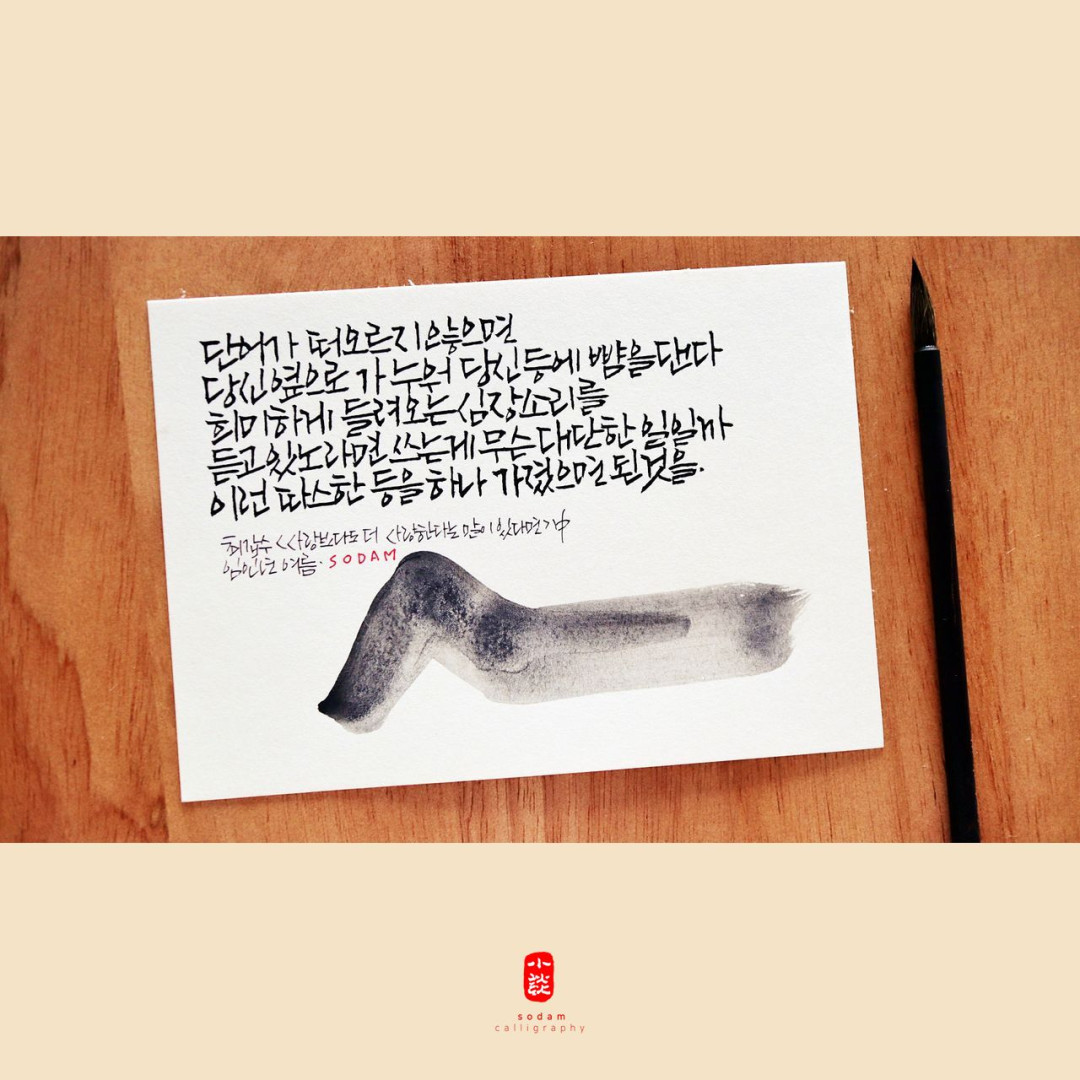 단어가 떠오르지 않으면
당신 옆으로 가 누워 당신 등에 뺨을 댄다
희미하게 들려오는 심장소리를
듣고 있노라면 쓰는게 무슨 대단한 일일까
이런 따스한 등을 하나 가졌으면 된것을.
최갑수 <사랑보다도 더 사랑한다는 말이 있다면 가中
임인년 여름. SODAM
小談
sodam
calligraphy